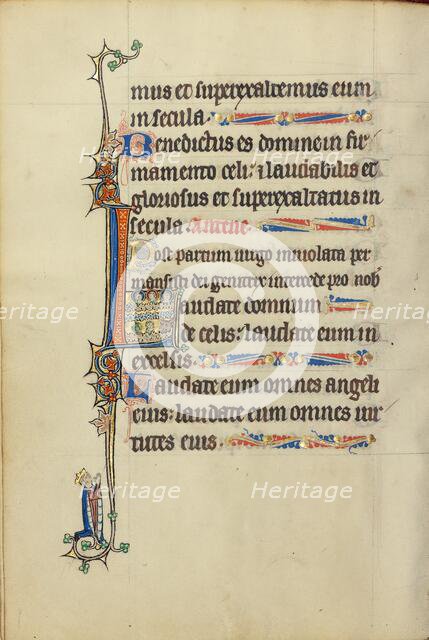 mus et superexaltemus eum
in secula
Benedictus es domine in fir
mamento celi: et laudabilis et
gloriosus et superexaltatus in
secula
Post partum uirgo inuiolata per
mansisti dei genitrix intercede pro nob
Laudate dominum
de celis: laudate eum in
excelsis
Laudate eum omnes angeli
eius: laudate eum omnes uir
tutes eius.
Heritage
Heritage
Heritage
Heritage
Heritage
Heritage